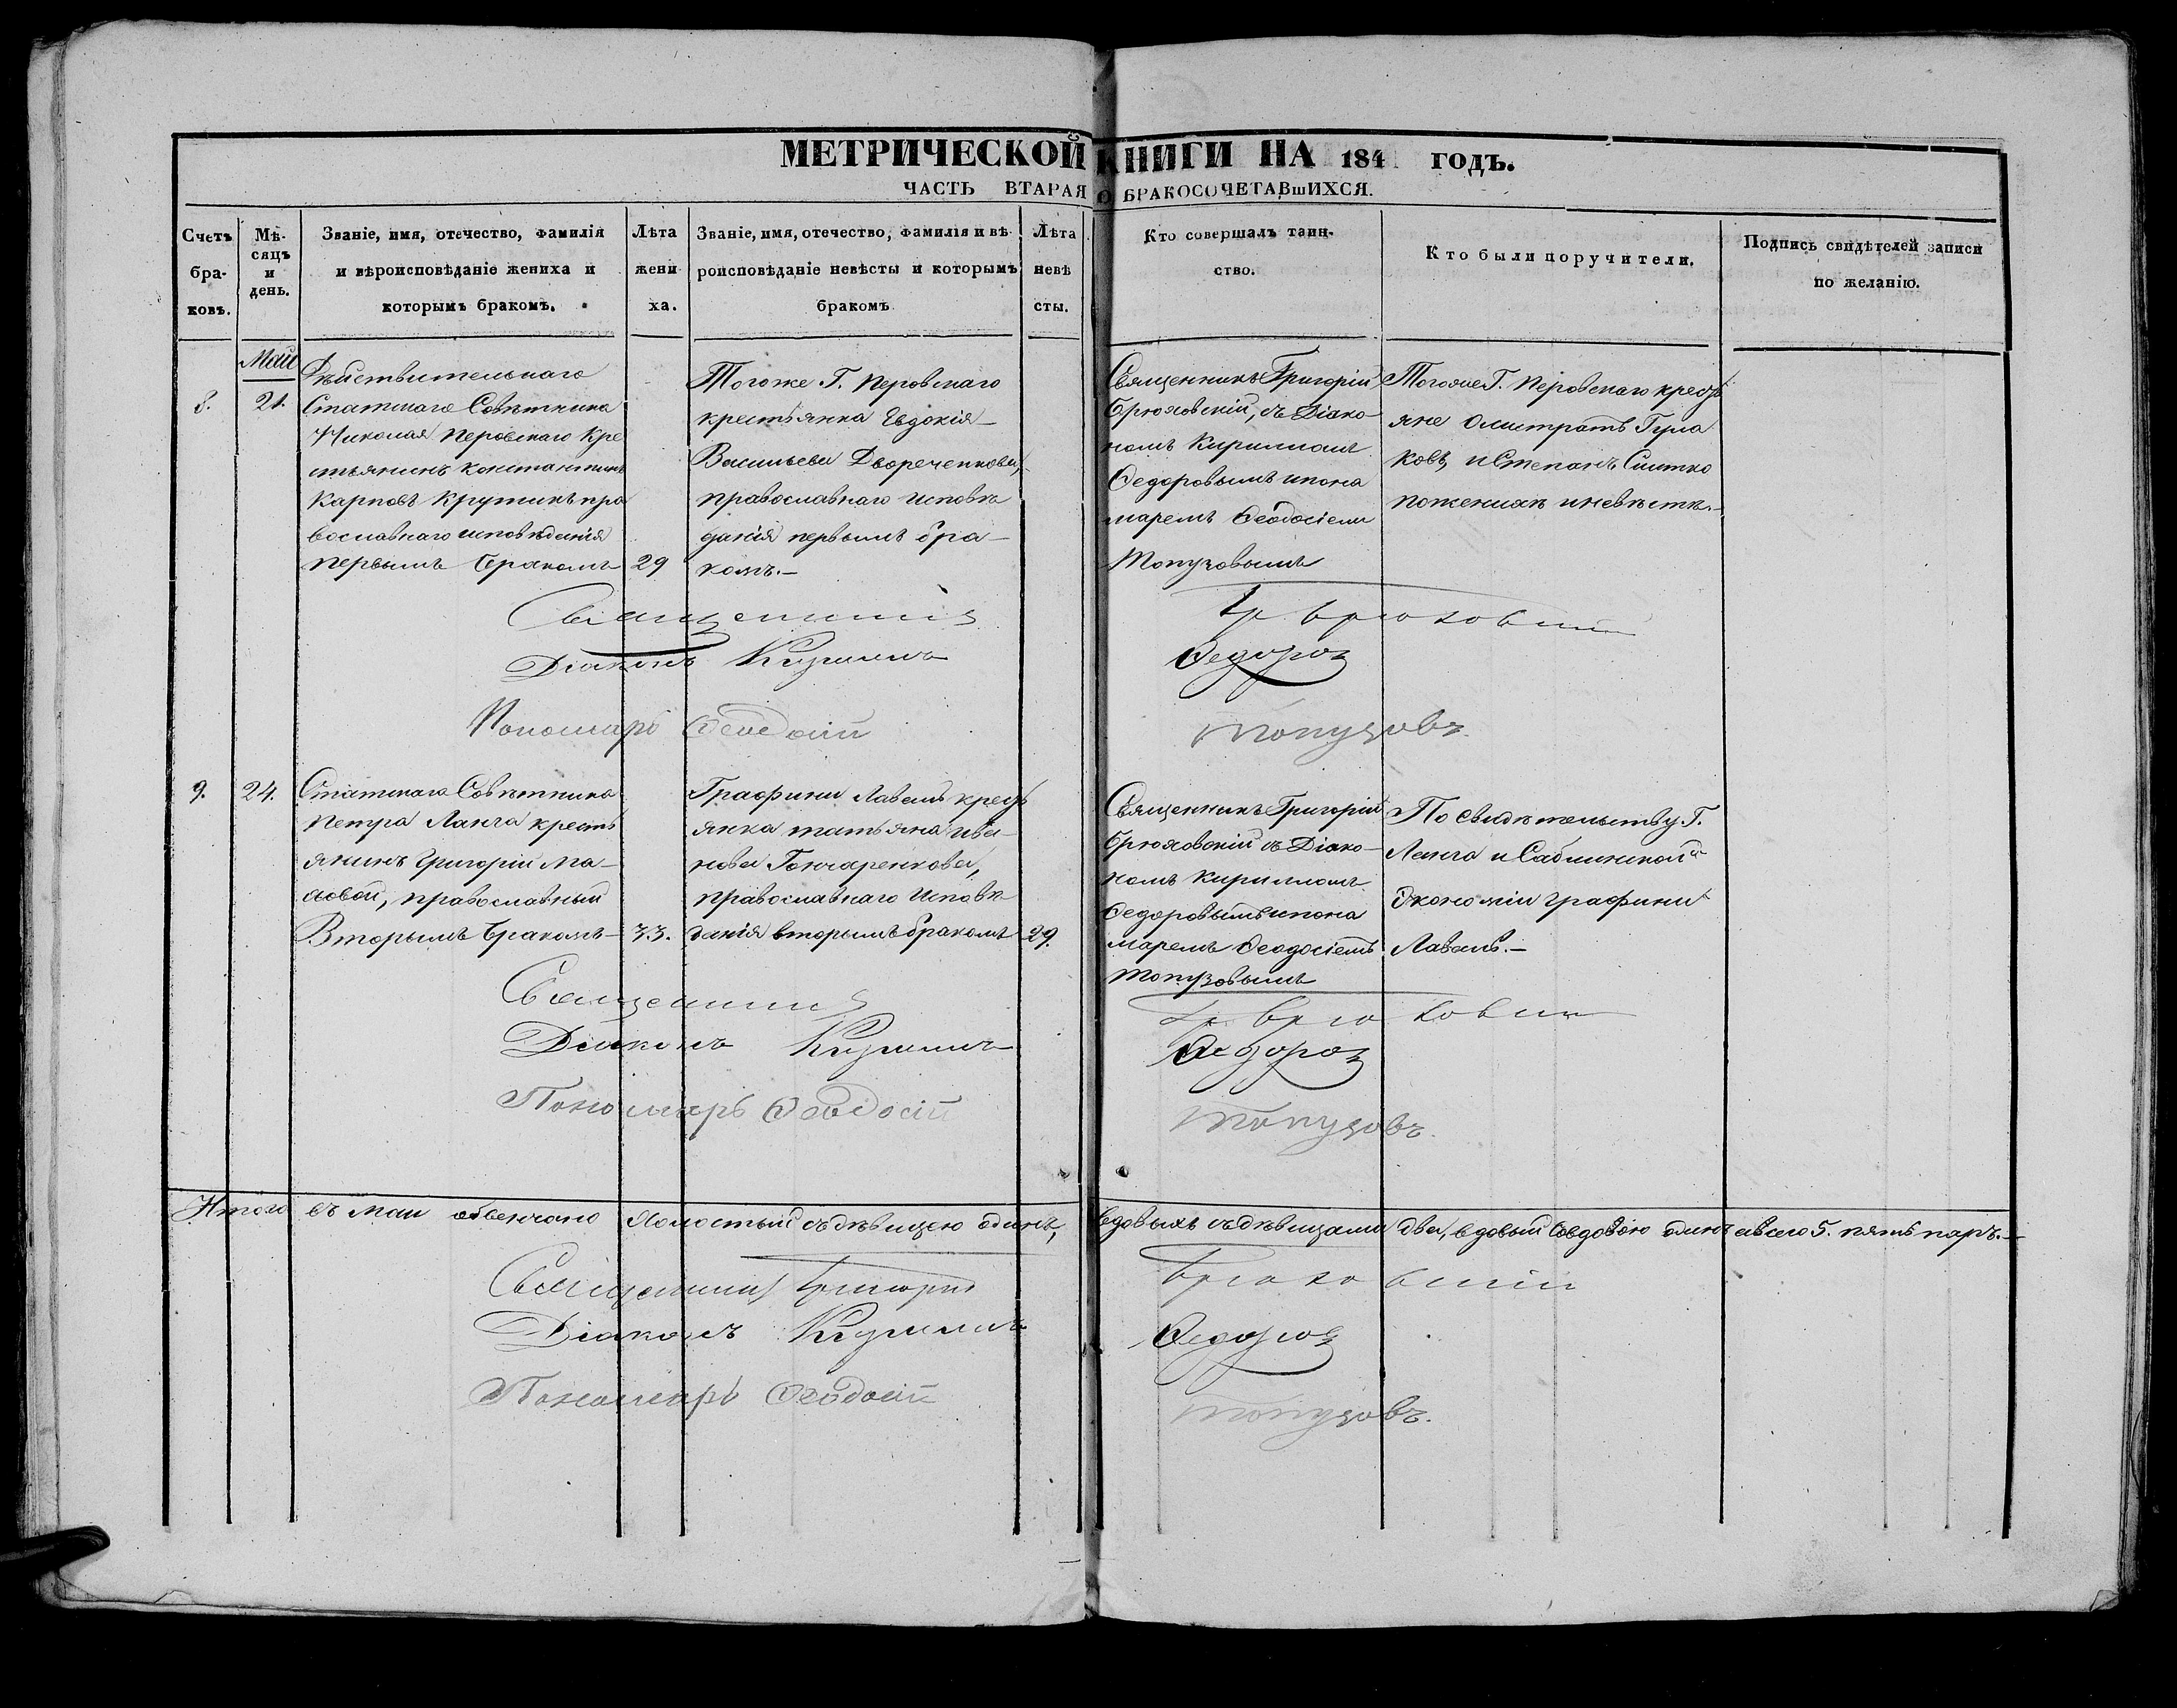 МЕТРИЧЕСКОЙ КНИГИ НА 184 ГОДЪ.
ЧАСТЬ ВТАРАЯ О БРАКОСОЧЕТАВшИХСЯ.
Счетъ бра- ковъ.
Мѣ- сяцъ и день.
Званіе, имя, отечество, фамилія
и вѣроисповѣданіе жениха и
которымъ бракомъ.
Лѣта жени ха.
Званіе, имя, отечество, фамилія и вѣ
роисповѣданіе невѣсты и которымъ
бракомъ
Лѣта невѣ сты.
Кто совершалъ таин-
ство.
Кто были поручители.
Подпись свидѣтелей записи
по желанію.
Май
8. 21.
Дѣйствительнаго
Статскаго Совѣтника
Николая Перовскаго Кре
стьянинъ Константинъ
Карповъ Крутикъ пра
вославнаго исповѣданія
первымъ бракомъ 29
Тогоже Г. Перовскаго
крестьянка Евдокія
Васильева Двореченкова,
православнаго исповѣ
данія первымъ бра-
комъ.-
Священникъ Григорій
Брюховскій, съ Діако-
номъ Кирилломъ
Федоровымъ и пона
маремъ Феодосіемъ
Топузовымъ
Тогоже Г. Перовскаго крест
яне
ковъ, и Степанъ Ситко
по женихѣ и невѣстѣ.-
Священникъ Гр. Брюховскій
Діаконъ Кириллъ Федоровъ
Пономарь Феодосій Топузовъ.
9. 24.
Статскаго Совѣтника
Петра Ланга кресть
янинъ Григорій Ма-
совой, православный
Вторымъ бракомъ- 33.
Графини Лаваль крест
янка Татьяна Ива-
нова Гончаренкова,
православнаго Исповѣ
данія вторымъ бракомъ 29.
Священникъ Григорій
Брюховскій съ Діако-
номъ Кирилломъ
Федоровымъ и пона
маремъ Феодосіемъ
Топузовымъ
По свидѣтельству Г.
Ланга и Саблинской
Экономіи графини
Лаваль.-
Священникъ Гр. Брюховскій
Діаконъ Кириллъ Федоровъ
Пономарь Феодосій Топузовъ.
Итого въ маи обвенчано Холостый съ дѣвицею одинъ, вдовыхъ съ дѣвицами два, вдовый со вдовою одинъ авсего 5. пять паръ.-
Священникъ Григорій Брюховскій
Діаконъ Кириллъ Федоровъ
Пономарь Феодосій Топузовъ.